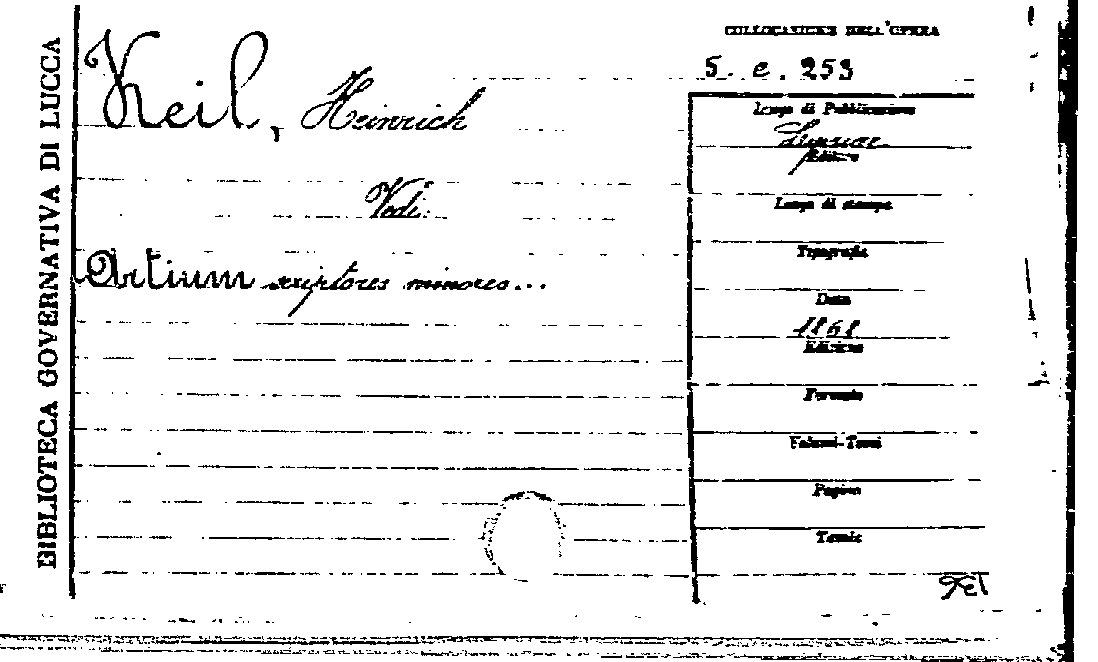 BIBLIOTECA GOVERNATIVA DI LUCCA
Keil, Heinrich
Vedi:
Artium scriptores minores...
COLLOCAZIONE DELL'OPERA
5. e. 253
Luogo di Pubblicazione
Lipsiae
Editore
Luogo di stampa
Tipografia
Data
1868
Edizione
Formato
Volumi-Tomi
Pagine
Tavole